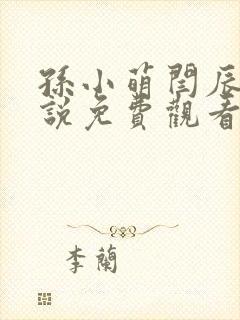 孫小萌閆辰
說免費觀看
李蘭